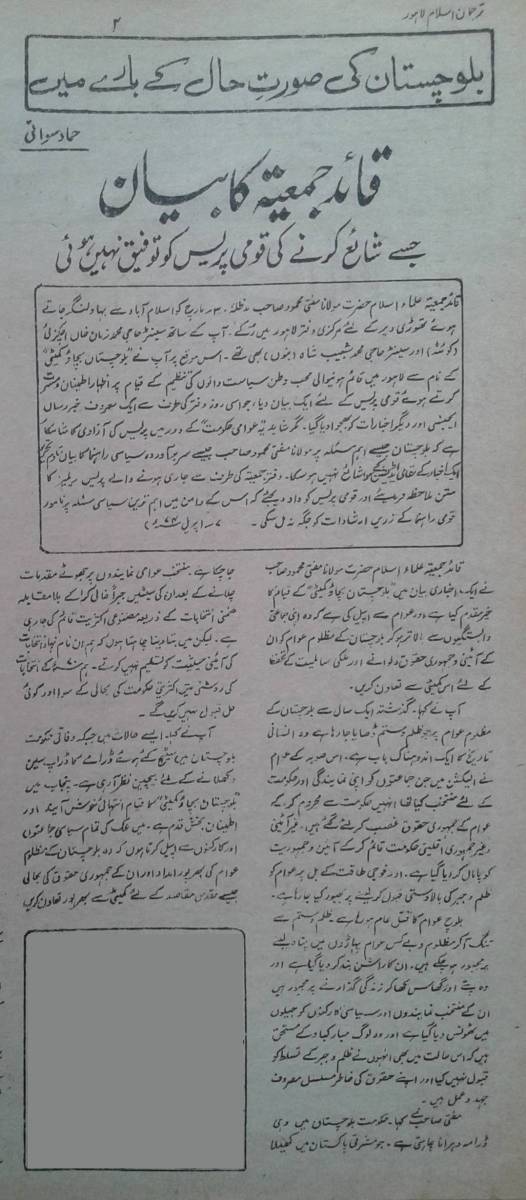 ترجمان اسلام لاہور
۲
بلوچستان کی صورتِ حال کے بارے میں
حماد سواتی
قائد جمعیۃ کا بیان
جسے شائع کرنے کی قومی پریس کو توفیق نہیں ہوئی
قائد جمعیۃ علماء اسلام حضرت مولانا مفتی محمود صاحب مدظلہٗ مارچ کو اسلام آباد سے بہاولنگر جاتے
ہوئے تھوڑی دیر کے لئے مرکزی دفتر لاہور میں رُکے۔ آپ کے ساتھ سینیٹر حاجی محمد زمان خاں اچکزئی
(کوئٹہ) اور سینیٹر حاجی محمد شعیب شاہ (بنوں) بھی تھے۔ اس موقع پر آپ نے "بلوچستان بچاؤ کمیٹی"
کے نام سے لاہور میں قائم ہونیوالی محب وطن سیاست دانوں کی تنظیم کے قیام پر اظہار اطمینان و مسرت
کرتے ہوئے قومی پریس کے لئے ایک بیان دیا، جو اسی روز دفتر کی طرف سے ایک معروف خبر رساں
ایجنسی اور دیگر اخبارات کو بھجوا دیا گیا۔ مگر شاید "عوامی حکومت" کے دور میں پریس کی آزادی کا شاہکار
ہے کہ بلوچستان جیسے اہم مسئلہ پر مولانا مفتی محمود صاحب جیسے سربرآوردہ سیاسی راہنما کا بیان
ایک اخبار کے شائع نہیں ہو سکا۔ دفتر جمعیۃ کی طرف سے جاری ہونے والے پریس ریلیز کا
متن ملاحظہ فرمایئے اور قومی پریس کو داد دیجئے کہ اس کے دامن میں اہم ترین سیاسی مسئلہ پر نامور
قومی راہنما کے زریں ارشادات کو جگہ نہ مل سکی۔ (۷ اپریل ۷۴ء)
قائد جمعیۃ علماء اسلام حضرت مولانا مفتی محمود صاحب
نے ایک اخباری بیان میں "بلوچستان بچاؤ کمیٹی" کے قیام کا
خیر مقدم کیا ہے اور عوام سے اپیل کی ہے کہ وہ اپنی جماعتی
وابستگیوں سے بالاتر ہو کر بلوچستان کے مظلوم عوام کو ان
کے آئینی و جمہوری حقوق دلوانے اور ملکی سالمیت کے تحفظ
کے لئے اس کمیٹی سے تعاون کریں۔
آپ نے کہا۔ گذشتہ ایک سال سے بلوچستان کے
مظلوم عوام پر جو ظلم و ستم ڈھایا جا رہا ہے وہ انسانی
تاریخ کا ایک اندوہناک باب ہے۔ اس صوبہ کے عوام
نے الیکشن میں جن جماعتوں کو اپنی نمائندگی اور حکومت
کے لئے منتخب کیا تھا انہیں حکومت سے محروم کر کے
عوام کے جمہوری حقوق غصب کر لئے گئے ہیں۔ غیر آئینی
و غیر جمہوری اقلیتی حکومت قائم کر کے آئین و جمہوریت
کو پامال کر دیا گیا ہے۔ اور فوجی طاقت کے بل پر عوام کو
ظلم و جبر کی بالادستی قبول کر لینے پر مجبور کیا جا رہا ہے۔
بلوچ عوام کا قتل عام ہو رہا ہے ظلم و ستم سے
تنگ آ کر مظلوم و بے کس عوام پہاڑوں میں پناہ لینے
پر مجبور ہو چکے ہیں۔ ان کا راشن بند کر دیا گیا ہے اور
وہ پتے اور گھاس کھا کر زندگی گذارنے پر مجبور ہیں
ان کے منتخب نمایندوں اور سیاسی کارکنوں کو جیلوں
میں ٹھونس دیا گیا ہے اور وہ لوگ مبارکباد کے مستحق
ہیں کہ اس حالت میں بھی انہوں نے ظلم و جبر کے تسلط کو
قبول نہیں کیا اور اپنے حقوق کی خاطر مسلسل مصروف
جہد و عمل ہیں۔
مفتی صاحب نے کہا۔ حکومت بلوچستان میں وہی
ڈرامہ دہرانا چاہتی ہے۔ جو مشرقی پاکستان میں کھیلا
جا چکا ہے۔ منتخب عوامی نمایندوں پر جھوٹے مقدمات
چلانے کے بعد ان کی سیٹیں جبراً خالی کرا کے بلا مقابلہ
ضمنی انتخابات کے ذریعہ مصنوعی اکثریت قائم کی جا رہی
ہے۔ لیکن میں بتا دینا چاہتا ہوں کہ ہم ان نام نہاد انتخابات
کی آئینی حیثیت کو تسلیم نہیں کرتے۔ ہم ۷۰ء کے انتخابات
کی روشنی میں اکثریتی حکومت کی بحالی کے سوا اور کوئی
حل قبول نہیں کریں گے۔
آپ نے کہا۔ ایسے حالات میں جبکہ وفاقی حکومت
بلوچستان میں سٹیج کئے ہوئے ڈرامے کا ڈراپ سین
دکھلانے کے لئے بے چین نظر آ رہی ہے۔ پنجاب میں
"بلوچستان بچاؤ کمیٹی" کا قیام انتہائی خوش آیند اور
اطمینان بخش قدم ہے۔ میں ملک کی تمام سیاسی جماعتوں
اور کارکنوں سے اپیل کرتا ہوں کہ وہ بلوچستان کے مظلوم
عوام کی بھرپور امداد اور ان کے جمہوری حقوق کی بحالی
جیسے مقدس مقاصد کے لئے کمیٹی سے بھرپور تعاون کریں